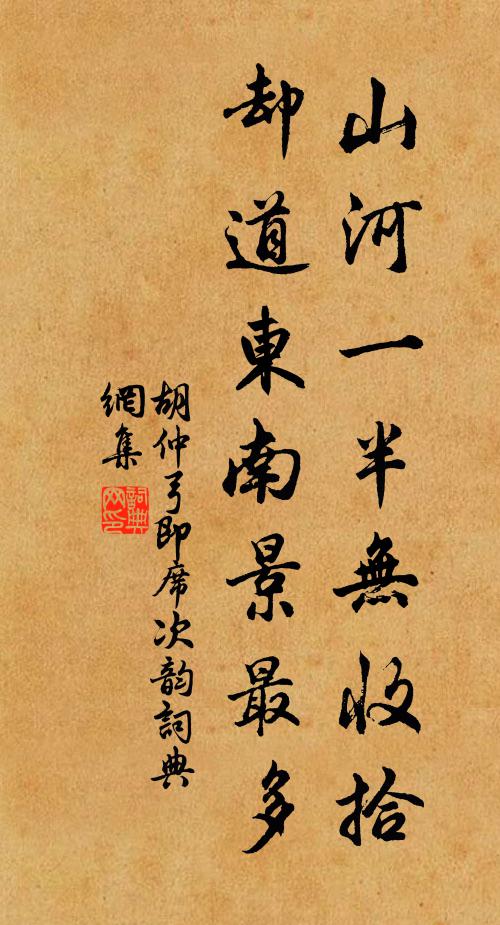 山河一半無收拾
却道東南景最多
胡仲弓即席次韵詞典
網集
詞典網印